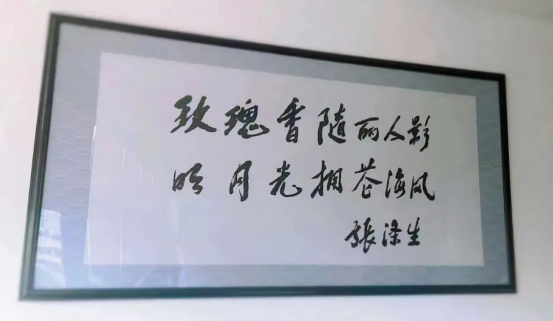 玫瑰香随丽人影
明月光拥苍海风
張涤生